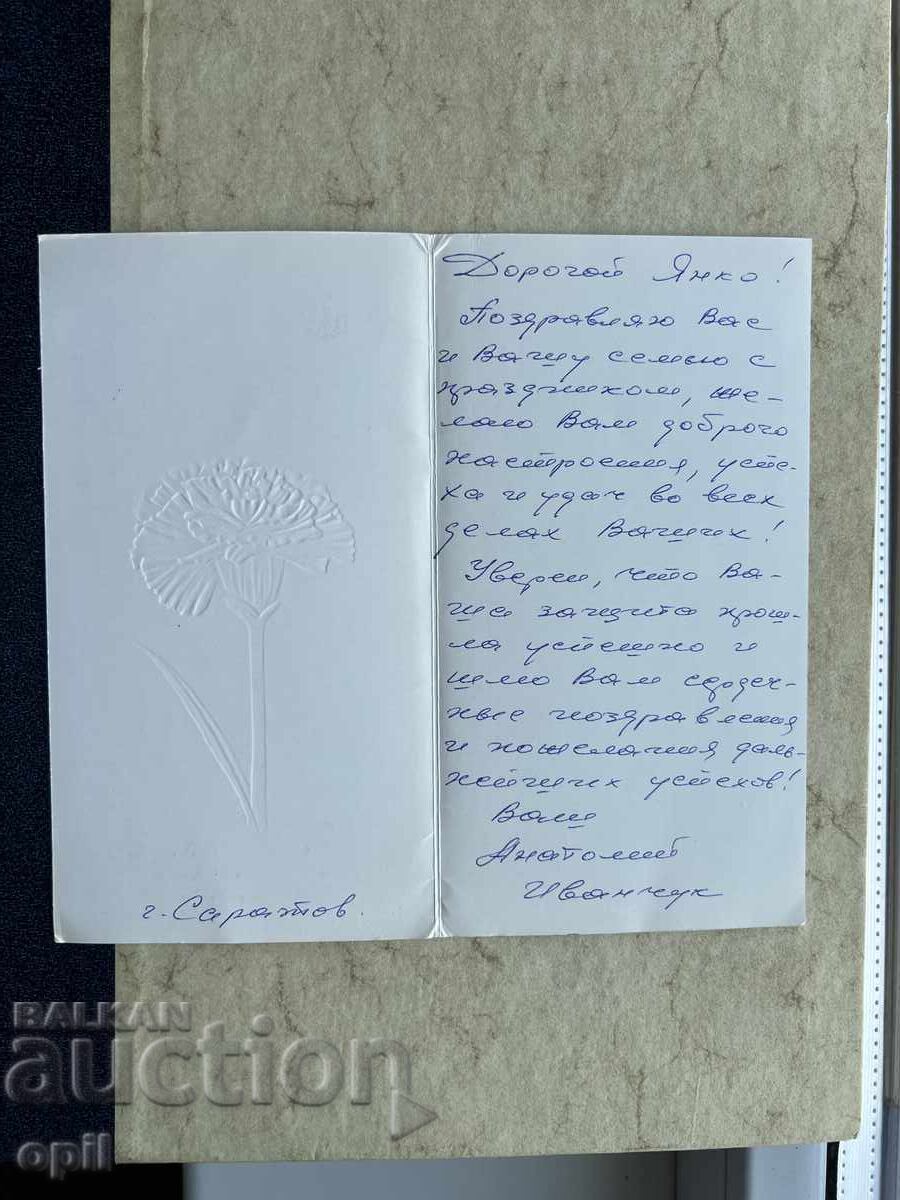 Дорогой Янко!
Поздравляю Вас
и Вашу семью с
праздником, же-
лаю Вам доброго
настроения, успе-
ха и удач во всех
делах Ваших!
Уверен, что Ва-
ша защита прош-
ла успешно и
шлю Вам сердеч-
ные поздравления
и пожелания даль-
нейших успехов!
Ваш
Анатолий
Иванчук
г. Саратов.
BALKAN
auction
opil